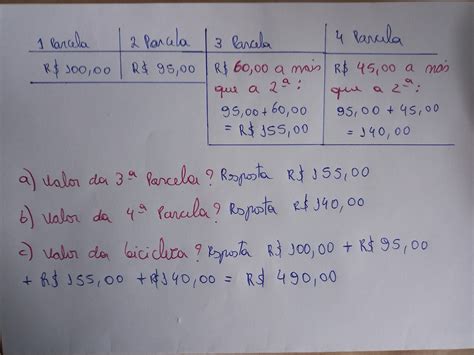 1 Parcela 2 Parcela 3 Parcela 4 Parcela
R$ 100,00 R$ 95,00 R$ 60,00 a mais R$ 45,00 a mais
que a 2ª: que a 2ª:
95,00 + 60,00 95,00 + 45,00
= R$ 155,00 = 140,00
a) Valor da 3ª Parcela? Resposta R$ 155,00
b) Valor da 4ª Parcela? Resposta R$ 140,00
c) Valor da bicicleta? Resposta R$ 100,00 + R$ 95,00
+ R$ 155,00 + R$ 140,00 = R$ 490,00